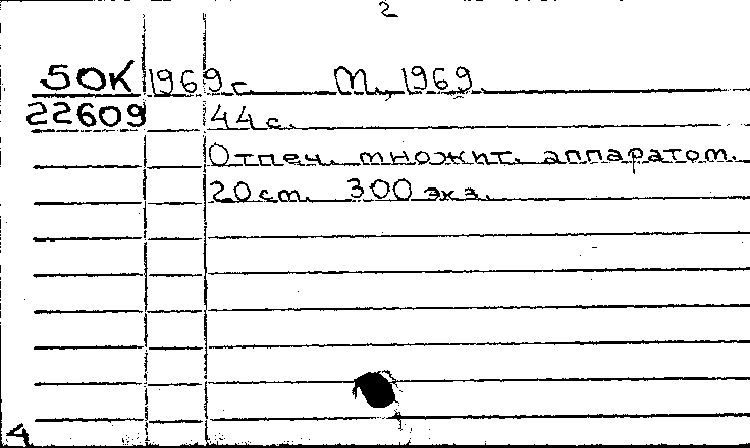 2
50К 1969 г. М., 1969.
22609 44 с.
Отпеч. множит. аппаратом.
20 ст. 300 экз.
4